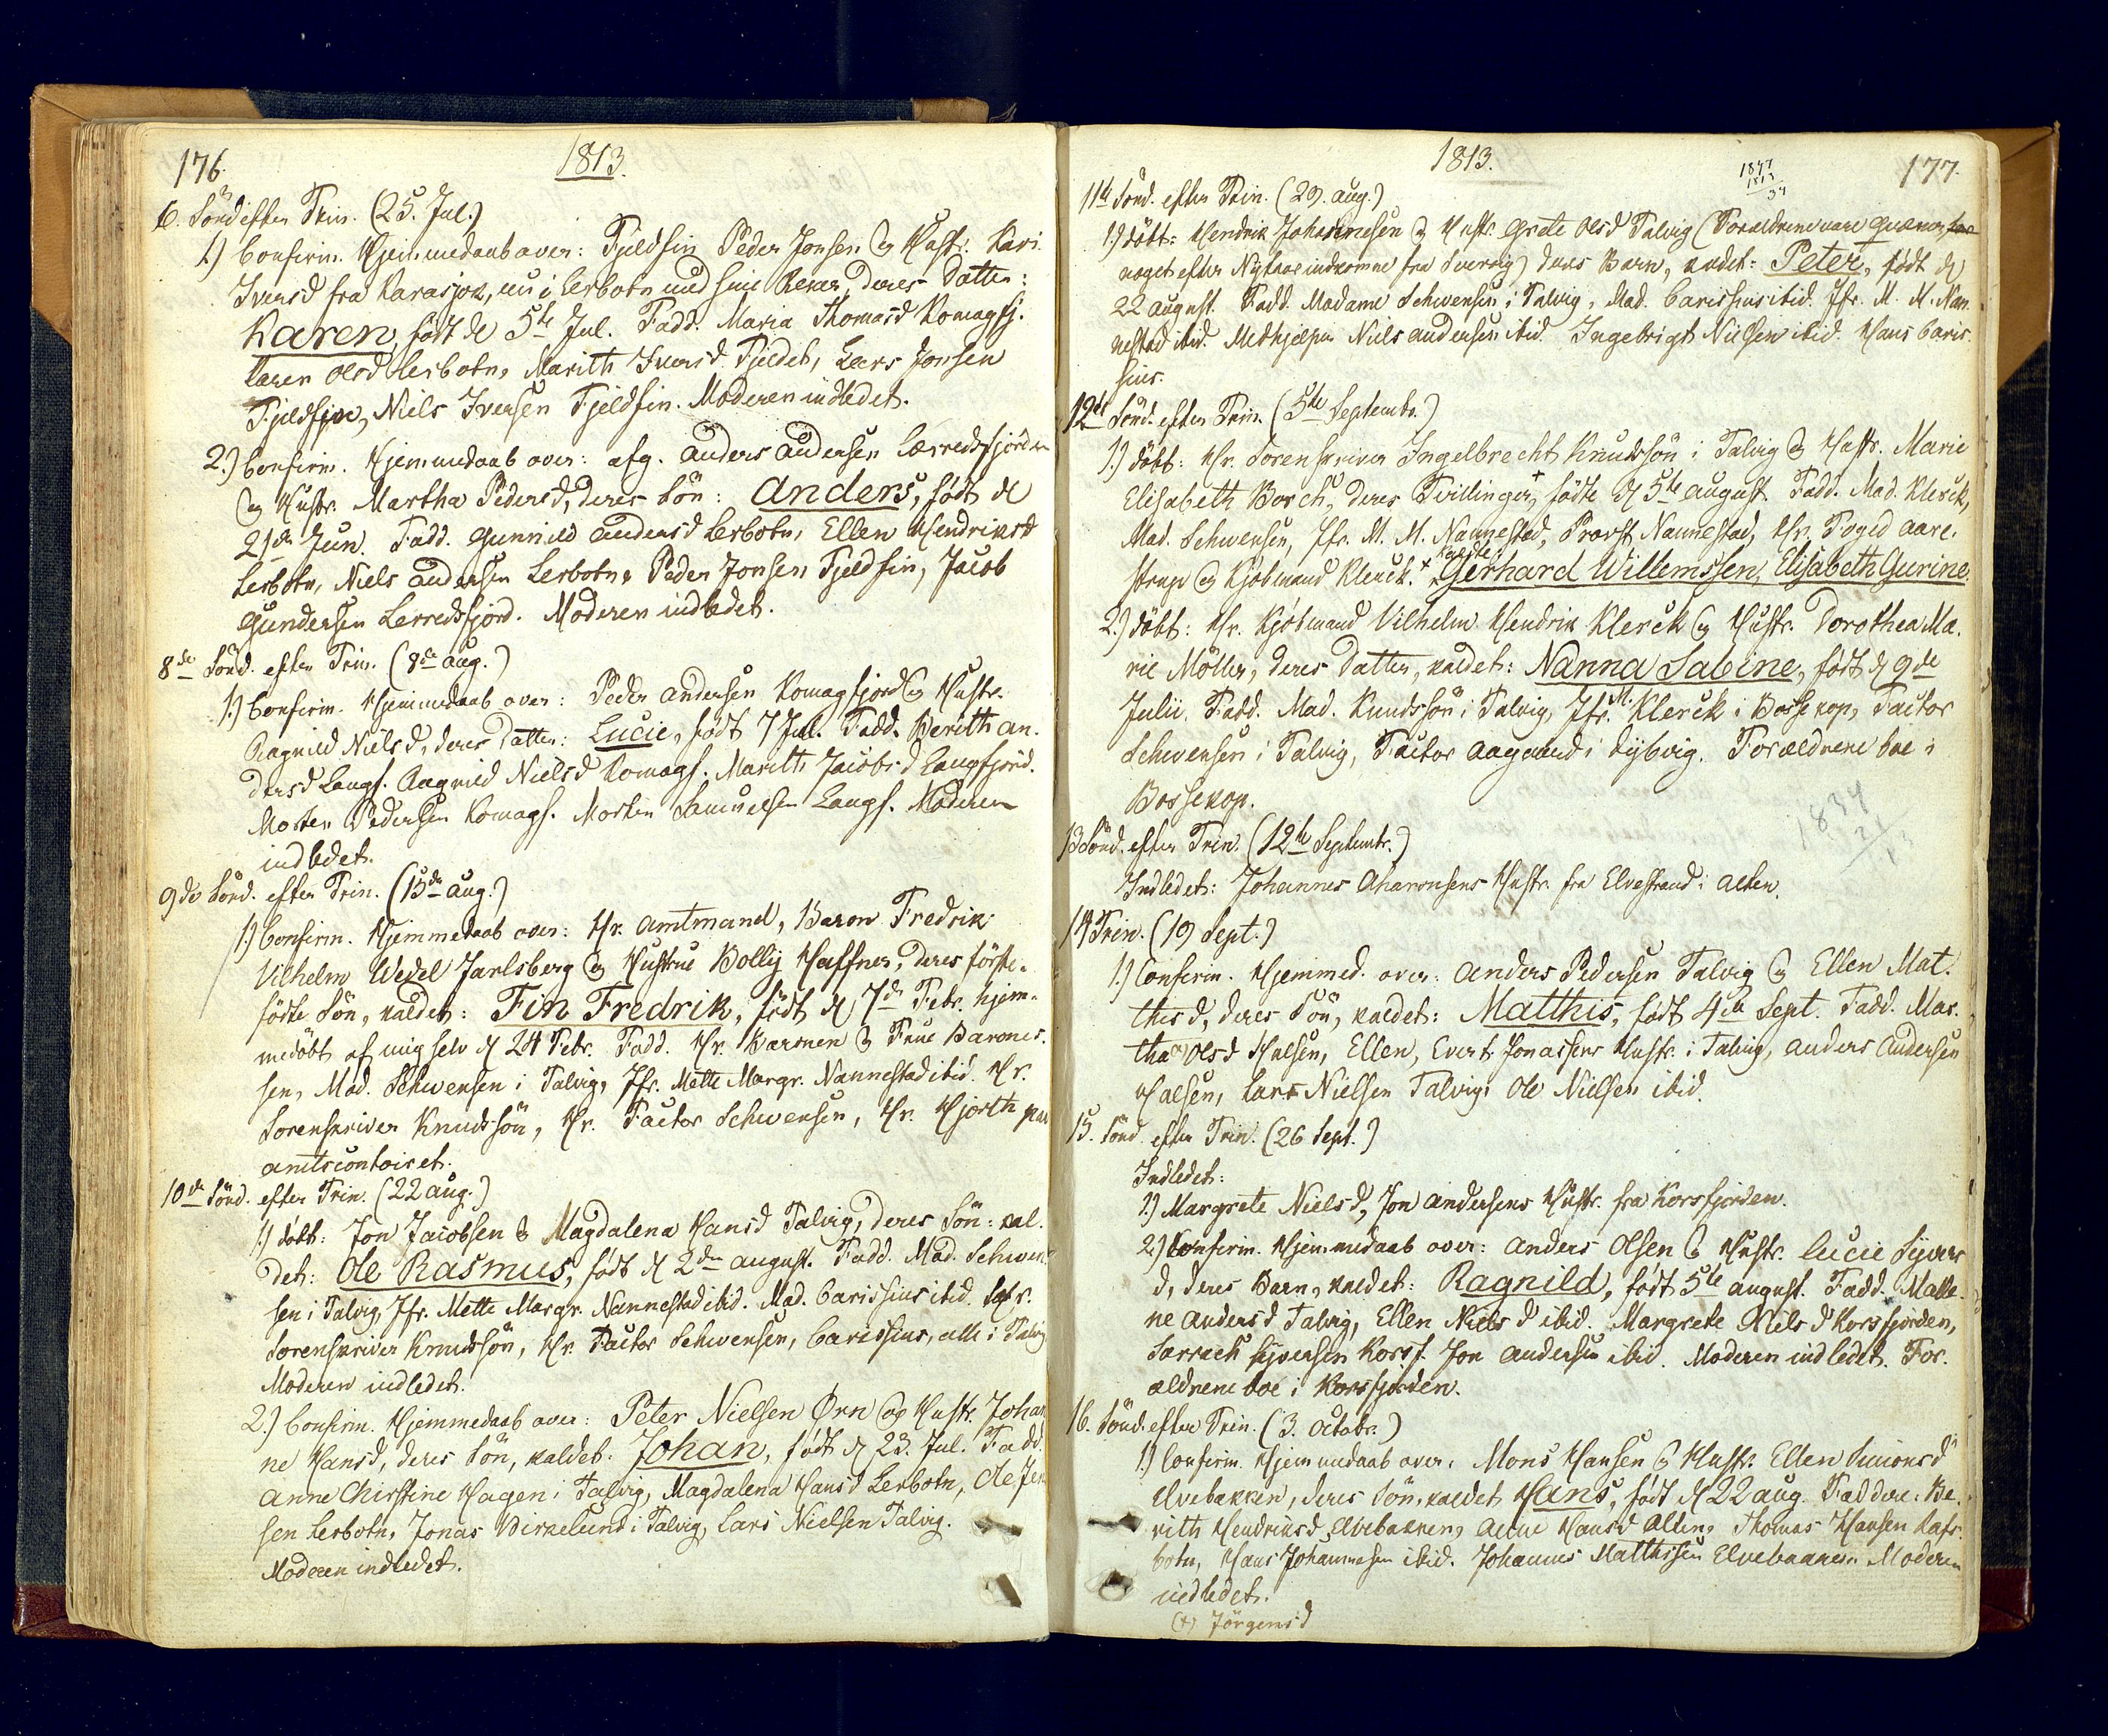 176.
1813.
6. Sönd efter Trin. (25. Jul.)
1.) Confirm. Hjemmedaab over: Fjeldfin Peder Jonsen og Hustr. Kari
Iversd fra Karasjok, nu i Lerbotn med sine Rener, deres Datter:
Karen, født d 5te Jul. Fadd. Maria Thomasd Komagfj.
Karen Olsd Lerbotn, Marith Iversd Fjeldet, Lars Jonsen
Fjeldfin, Niels Iversen Fjeldfin. Moderen indledet.
2.) Confirm. Hjemmedaab over: afg. Anders Andersen Lerredsfjorden
og Hustr. Martha Pedersd, deres Sön: Anders, født d
21de Jun. Fadd. Gunnild Andersd Lerbotn, Ellen Hendriksd
Lerbotn, Niels Andersen Lerbotn, Peder Jonsen Fjeldfin, Jacob
Gundersen Lerredsfjord. Moderen indledet.
8de Sönd. efter Trin. (8de Aug.)
1.) Confirm. Hjemmedaab over: Peder Andersen Komagfjord og Hustr.
Ragnild Nielsd, deres Datter: Lucie, født 7 Jul. Fadd. Berith An-
dersd Langf. Ragnild Nielsd Komagf. Marith Jacobsd Langfjord.
Morten Pedersen Komagf. Morten Samuelsen Langf. Moderen
indledet.
9de Sönd. efter Trin. (15de Aug.)
1.) Confirm. Hjemmedaab over: Hr. Amtmand, Baron Fredrik
Vilhelm Wedel Jarlsberg og Hustrue Bolly Haffner, deres første-
fødte Sön, kaldet: Fin Fredrik, født d 7de Febr. hjem-
medöbt af mig selv d 24 Febr. Fadd. Hr. Baronen & Frue Barones-
sen, Mad. Schwensen i Talvig, Jfr. Mette Margr. Nannestad ibid. Hr.
Sorenskriver Knudssön, Hr. Factor Schwensen, Hr. Hjorth paa
Amtscontoiret.
10de Sönd. efter Trin. (22 Aug.)
1.) Döbt: Jon Jacobsen & Magdalena Hansd Talvig, deres Sön: kal-
det: Ole Rasmus, født d 2den August. Fadd. Mad. Schwen-
sen i Talvig, Jfr. Mette Margr. Nannestad ibid. Mad. Carissius ibid. Hr.
Sorenskriver Knudssön, Hr. Factor Schwensen, Carissius, alle i Talvig
Moderen indledet.
2.) Confirm. Hjemmedaab over: Peter Nielsen Ørn og Hustr. Johan
ne Hansd, deres Sön, kaldet: Johan, født d 23. Jul. Fadd.
Anne Christine Hagen i Talvig, Magdalena Hansd Lerbotn, Ole Jen
sen Lerbotn, Jonas Birkelund i Talvig, Lars Nielsen Talvig.
Moderen indledet.
1813.
1847
1813
34
177.
11te Sönd. efter Trin. (29. Aug.)
1.) Döbt: Hendrik Johannesen & Hustr. Grete Olsd Talvig (Forældrene vare Qvæner
noget efter Nytaar indkomne fra Sverrig) deres Barn, kaldet: Peter, født d
22 August. Fadd. Madame Schwensen i Talvig, Mad. Carissius ibid. Jfr. M. M. Nan-
nestad ibid. Medhjelper Niels Andersen ibid. Ingebrigt Nielsen ibid. Hans Caris-
sius.
12te Sönd. efter Trin. (5te Septembr.)
1.) Döbt: Hr. Sorenskriver Ingelbrecht Knudssön i Talvig & Hustr. Marie
Elisabeth Borch, deres Tvillinger, + fødte d 5te August. Fadd. Mad. Klerck,
Mad. Schwensen, Jfr. M. M. Nannestad, Provst Nannestad, Hr. Foged Aare-
strup og Kjöbmand Klerck. + kaldet Gerhard Willemssen, Elisabeth Gurine.
2.) Döbt: Hr. Kjöbmand Vilhelm Hendrik Klerck og Hustr. Dorothea Ma-
rie Möller, deres Datter, kaldet: Nanna Sabine, født d 9de
Julii. Fadd. Mad. Knudssön i Talvig, Jfr. M. Klerck i Bossekop, Factor
Schwensen i Talvig, Factor Aagaard i Dybvig. Forældrene boe i
Bossekop.
1834
21/13
13 Sönd. efter Trin. (12te Septembr.)
Indledet: Johannes Aharonsens Hustr. fra Elvestrand i Alten.
14 Trin. (19 Sept.)
1.) Confirm. Hjemmed. over: Anders Pedersen Talvig & Ellen Mat-
thisd, deres Sön, kaldet: Matthis, født 4de Sept. Fadd. Mar-
tha (+) Olsd Halsen, Ellen, Evert Jonassens Hustr. i Talvig, Anders Andersen
Halsen, Lars Nielsen Talvig, Ole Nielsen ibid.
15. Sönd. efter Trin. (26 Sept.)
Indledet:
1.) Margrete Nielsd, Jon Andersens Hustr. fra Korsfjorden.
2.) Confirm. Hjemmedaab over: Anders Olsen & Hustr. Lucie Siver
d, deres Barn, kaldet: Ragnild, født 5te August. Fadd. Malle-
ne Andersd Talvig, Ellen Nielsd ibid. Margrete Nielsd Korsfjorden,
Sarrach Syversen Korsf. Jon Andersen ibid. Moderen indledet. For-
ældrene boe i Korsfjorden.
16. Sönd. efter Trin. (3. Octobr.)
1.) Confirm. Hjemmedaab over: Mons Hansen & Hustr. Ellen Simonsd
Elvebakken, deres Sön, kaldet Hans, født d 22 Aug. Faddere: Be-
rith Hendriksd Elvebakken, Anne Hansd Alten, Thomas Hansen Rafs-
botn, Hans Johannesen ibid. Johannes Matthisen Elvebakken. Moderen
indledet.
(+) Jörgensd